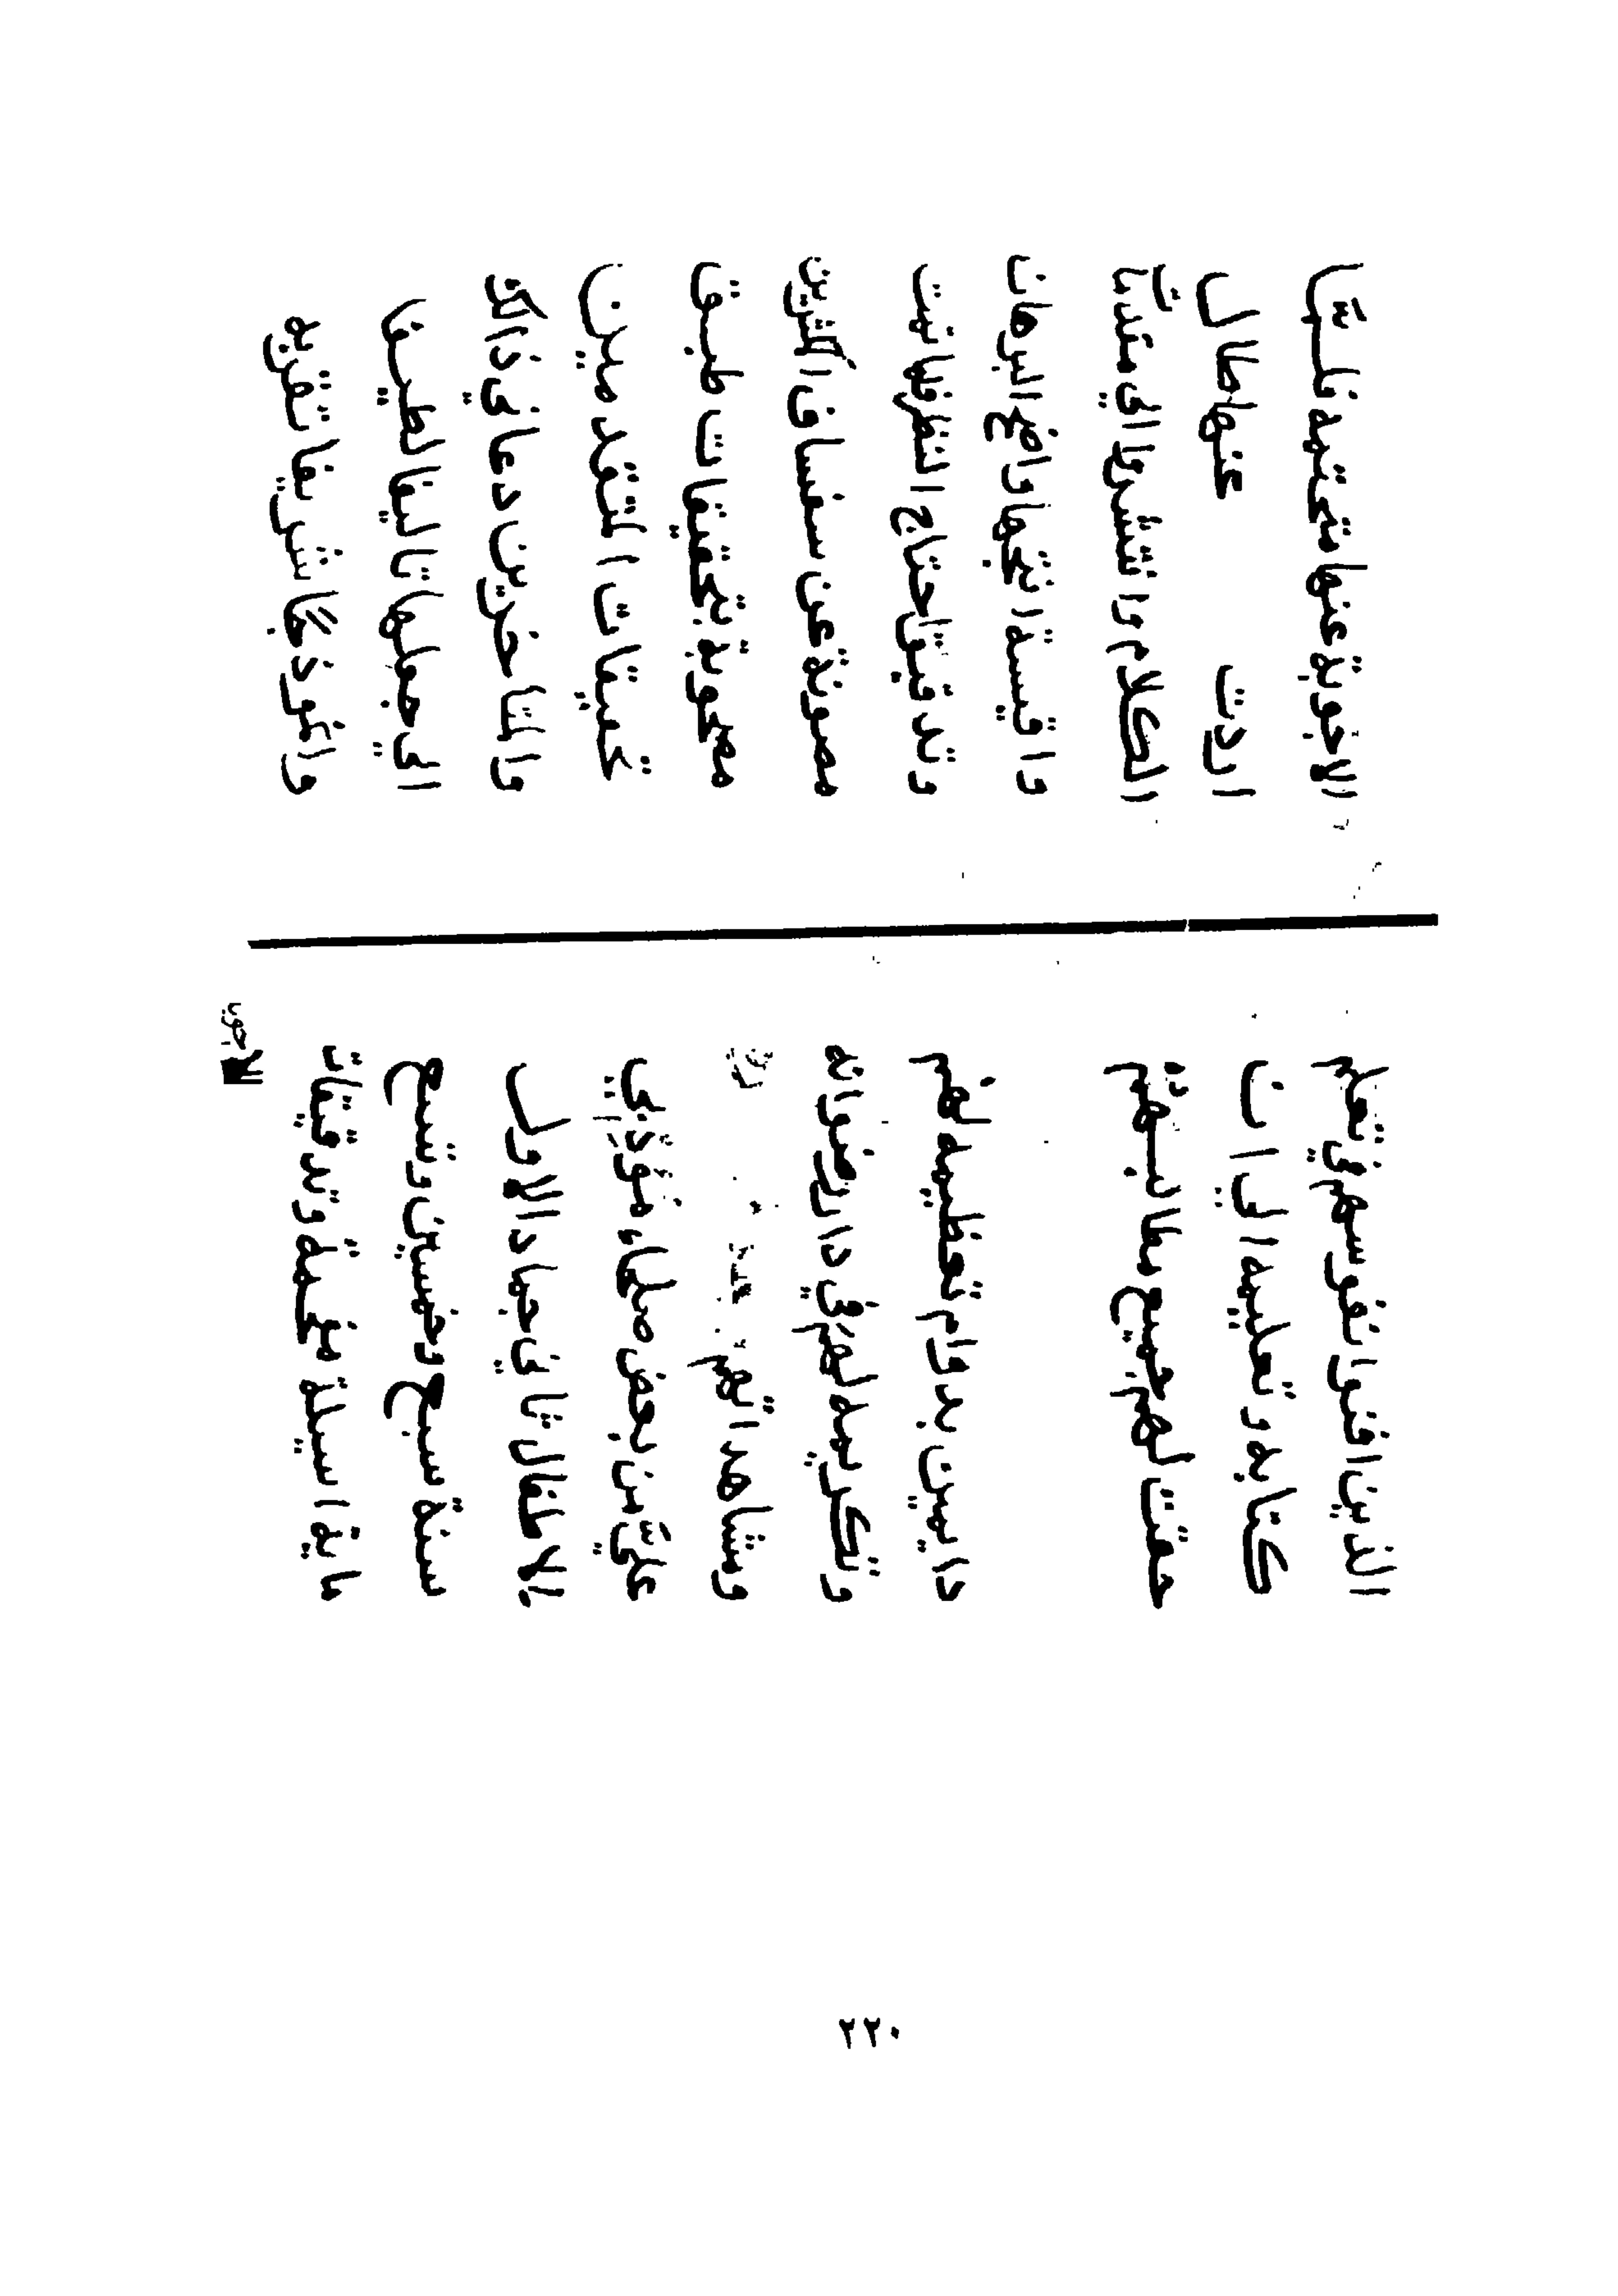 الذين افنوا نفوسهم في تعلم
كتابه وتعليمه الي ان
حقت لهم جميع مطالبهم ثم
دايمين بدوام تعظيمه لهم
وتكريمه لهم في دار رضوانه
ومشاهداتهم
عليّ من بعض صلحاء مؤدبي
الاطفال ثاني جماد الاول
سنة سبع وخمسين وتسع
ماية اسيلة وتدقيقات
الاجوبة
الاجوبة عنها متحتمة فلمّا
اردت عنها طال
الكلام وانتشر والي
واقيسة انتجها واضح البرهان
وتدقيق احتاج النظر فيها
مصونة عن سفساف اكثرين
مصحوبة بتحقيقات طبق
المتقدمين
والمتاخرين دعاني ذالك
الي جعلها تاليفا لطيفا
وانموذجا شريفا تقربه
٢٢٠